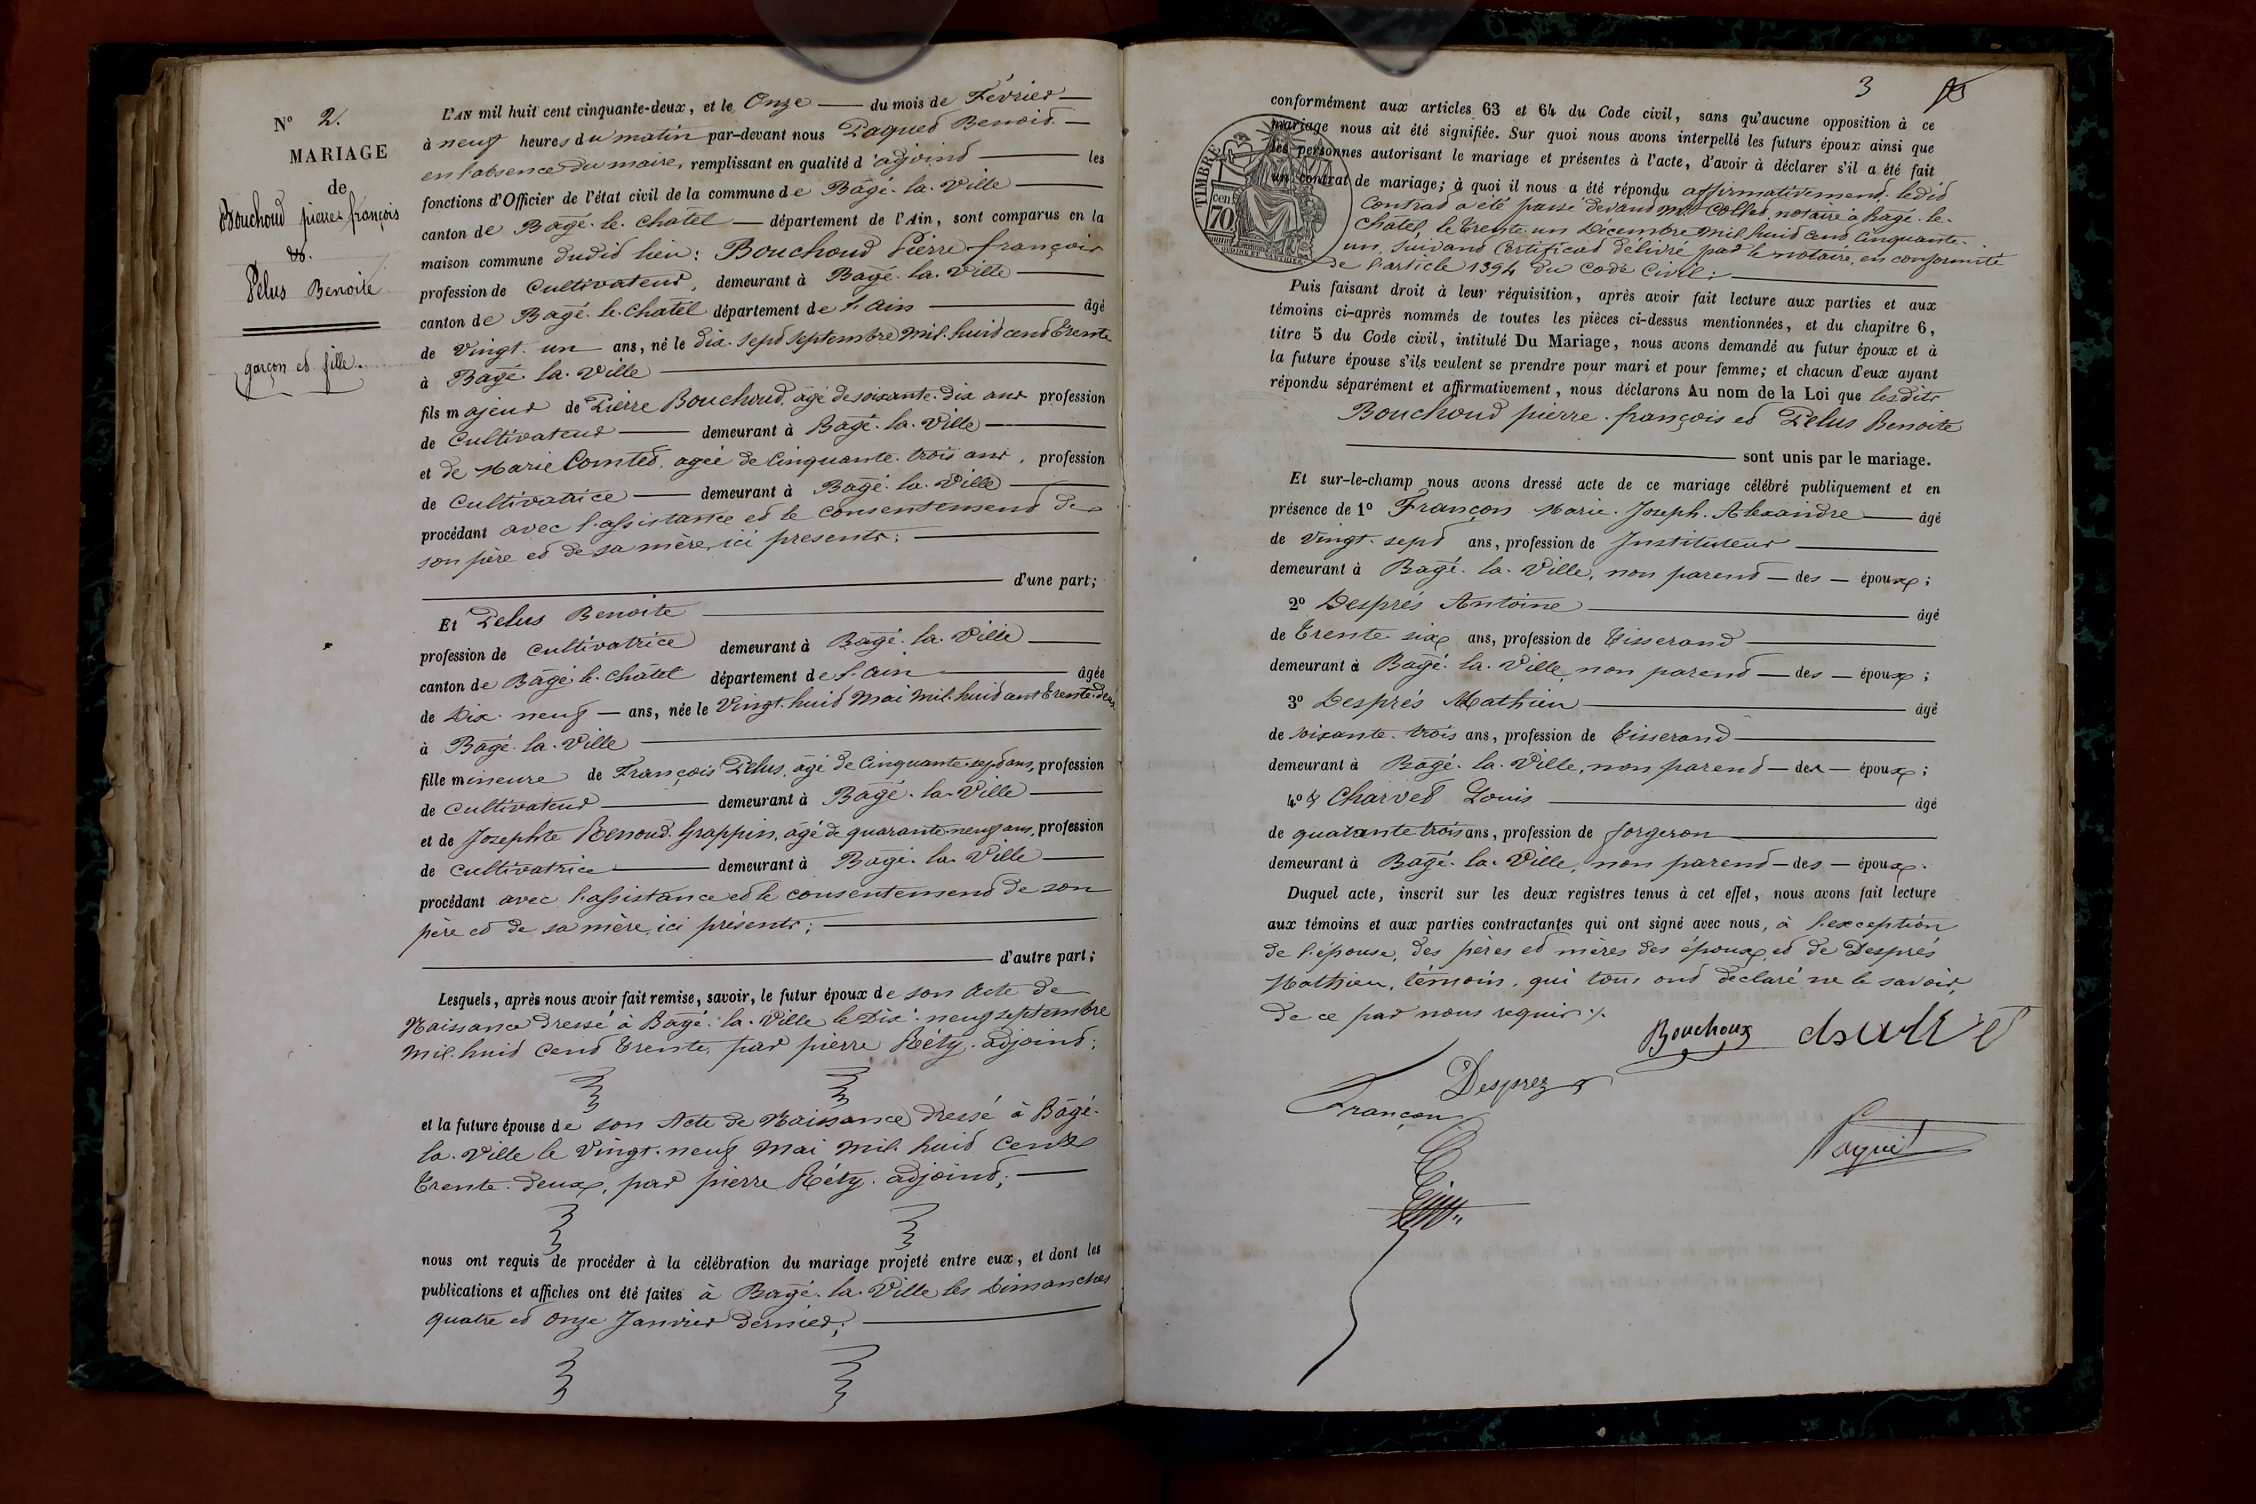 N° 2.
MARIAGE
de
Bouchoud pierre françois
&.
Pelus Benoite
garçon et fille.
L'AN mil huit cent cinquante-deux, et le Onze du mois de Février
à neuf heures du matin par-devant nous Paquet Benoit
en l'absence du maire, remplissant en qualité d'adjoint les
fonctions d'Officier de l'état civil de la commune de Bâgé-la-Ville
canton de Bâgé-le-châtel département de l'Ain, sont comparus en la
maison commune dudit lieu: Bouchoud Pierre françois
profession de Cultivateur, demeurant à Bâgé-la-Ville
canton de Bâgé-le-Chatel département de l'ain âgé
de Vingt-un ans, né le dix-sept septembre Mil-huit cent trente
à Bâgé-la-Ville
fils majeur de Pierre Bouchoud, âgé de soixante-dix ans profession
de Cultivateur demeurant à Bâgé-la-Ville
et de Marie Comtet, agée de Cinquante-trois ans, profession
de Cultivatrice demeurant à Bâgé-la-Ville
procédant avec l'assistance et le consentement de
son père et de sa mère, ici presents;
d'une part;
Et Pelus Benoite
profession de cultivatrice demeurant à Bâgé-la-Ville
canton de Bâgé-le-Châtel département de l'ain âgée
de Dix-neuf ans, née le Vingt-huit Mai Mil-huit cent trente-deux
à Bâgé-la-Ville
fille mineure de François Pelus, âgé de Cinquante-sept ans, profession
de cultivateur demeurant à Bâgé-la-Ville
et de Josephte Renoud-Grappin, âgé de quarante-neuf ans, profession
de cultivatrice demeurant à Bâgé-la-Ville
procédant avec l'assistance et le consentement de son
père et de sa mère, ici présents;
d'autre part;
Lesquels, après nous avoir fait remise, savoir, le futur époux de son Acte de
Naissance dressé à Bâgé-la-Ville le Dix-neuf septembre
Mil-huit Cent trente, par pierre Réty, adjoint;
et la future épouse de son Acte de Naissance dressé à Bâgé-
la-Ville le Vingt-neuf Mai Mil huit Cent
trente-deux, par pierre Réty, adjoint;
nous ont requis de procéder à la célébration du mariage projeté entre eux, et dont les
publications et affiches ont été faites à Bâgé-la-Ville les Dimanches
quatre et Onze Janvier dernier;
3
TIMBRE
cen
70
conformément aux articles 63 et 64 du Code civil, sans qu'aucune opposition à ce
mariage nous ait été signifiée. Sur quoi nous avons interpellé les futurs époux ainsi que
les personnes autorisant le mariage et présentes à l'acte, d'avoir à déclarer s'il a été fait
un contrat de mariage; à quoi il nous a été répondu affirmativement. ledit
Contrat a été passé devant Mtre Collet, notaire à Bâgé-le-
Châtel, le trente-un Décembre Mil huit Cent Cinquante-
un, suivant Certificat délivré par le notaire, en conformité
de l'article 1394 du Code Civil;
Puis faisant droit à leur réquisition, après avoir fait lecture aux parties et aux
témoins ci-après nommés de toutes les pièces ci-dessus mentionnées, et du chapitre 6,
titre 5 du Code civil, intitulé Du Mariage, nous avons demandé au futur époux et à
la future épouse s'ils veulent se prendre pour mari et pour femme; et chacun d'eux ayant
répondu séparément et affirmativement, nous déclarons Au nom de la Loi que lesdits
Bouchoud pierre-françois et Pelus Benoite
sont unis par le mariage.
Et sur-le-champ nous avons dressé acte de ce mariage célébré publiquement et en
présence de 1° Françon Marie-Joseph-Alexandre âgé
de Vingt-sept ans, profession de Instituteur
demeurant à Bâgé-la-Ville, non parent des époux;
2° Després Antoine âgé
de trente-six ans, profession de tisserand
demeurant à Bâgé-la-Ville, non parent des époux;
3° Després Mathieu âgé
de soixante-trois ans, profession de tisserand
demeurant à Bâgé-la-Ville, non parent des époux;
4° & Charvet Louis âgé
de quarante trois ans, profession de forgeron
demeurant à Bâgé-la-Ville, non parent des époux.
Duquel acte, inscrit sur les deux registres tenus à cet effet, nous avons fait lecture
aux témoins et aux parties contractantes qui ont signé avec nous, à l'exception
de l'épouse, des pères et mères des époux, et de Després
Mathieu, témoin, qui tous ont déclaré ne le savoir,
de ce par nous requis./.
Bouchoux
Desprez
Françon
Paquet